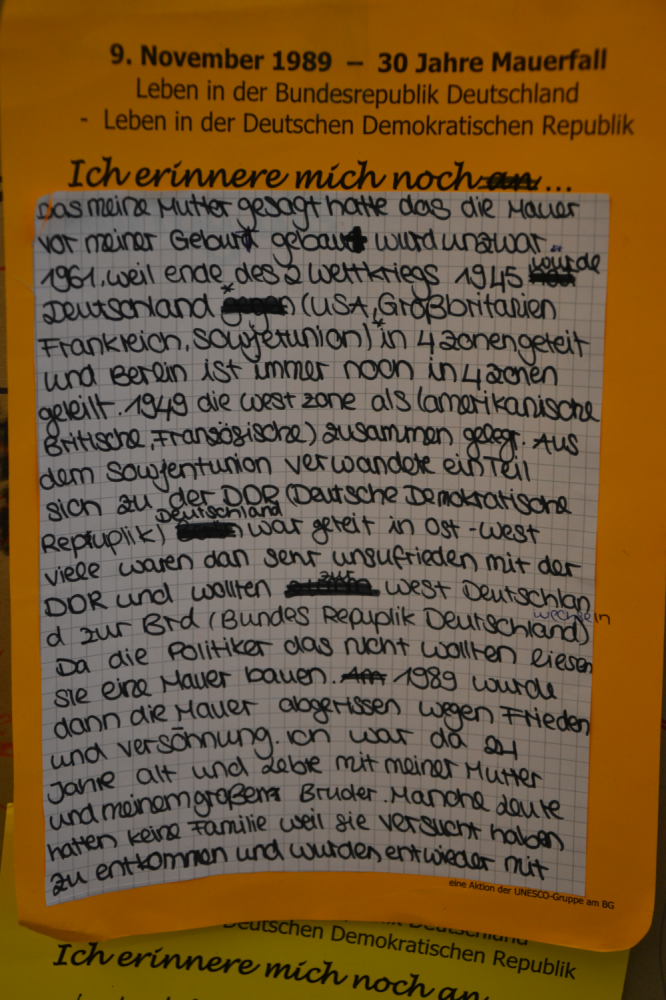 9. November 1989 – 30 Jahre Mauerfall
Leben in der Bundesrepublik Deutschland
- Leben in der Deutschen Demokratischen Republik
Ich erinnere mich noch an ...
Das meine Mutter gesagt hatte das die Mauer
vor meiner Geburt gebaut wurd unzwar
1961. weil ende des 2 weltkriegs 1945 wurde
Deutschland (USA, Großbritanien
Frankreich, Sowjetunion) in 4 zonen geteit
und Berlin ist immer noch in 4 zonen
geteilt. 1949 die west zone als (amerikanische
Britische, Französische) zusammen gelegt. Aus
dem Sowjentunion verwandete ein Teil
sich zu der DDR (Deutsche Demokratische
Repuplik) Deutschland war geteit in Ost-West
viele waren dan sehr unzufrieden mit der
DDR und wollten zum West Deutschlan
d zur Brd (Bundes Repuplik Deutschland) wechseln
Da die Politiker das nicht wollten liesen
sie eine Mauer bauen. Am 1989 wurde
dann die Mauer abgerissen wegen Frieden
und versöhnung. ich war da 24
Jahre alt und lebte mit meiner Mutter
und meinem großem Bruder. Manche leute
hatten keine Familie weil sie versucht haben
zu entkommen und wurden entwieder mit
eine Aktion der UNESCO-Gruppe am BG
Deutschen Demokratischen Republik
Ich erinnere mich noch an